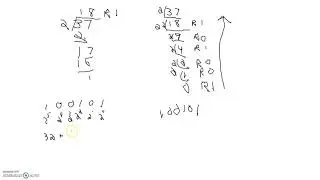 18 R1
2 37
2
17
16
1
2 37
2 18 R1
2 9 R0
2 4 R1
R0
R0
R1
1 0 0 1 0 1
2⁵ 2⁴ 2³ 2² 2¹ 2⁰
32 +
100101